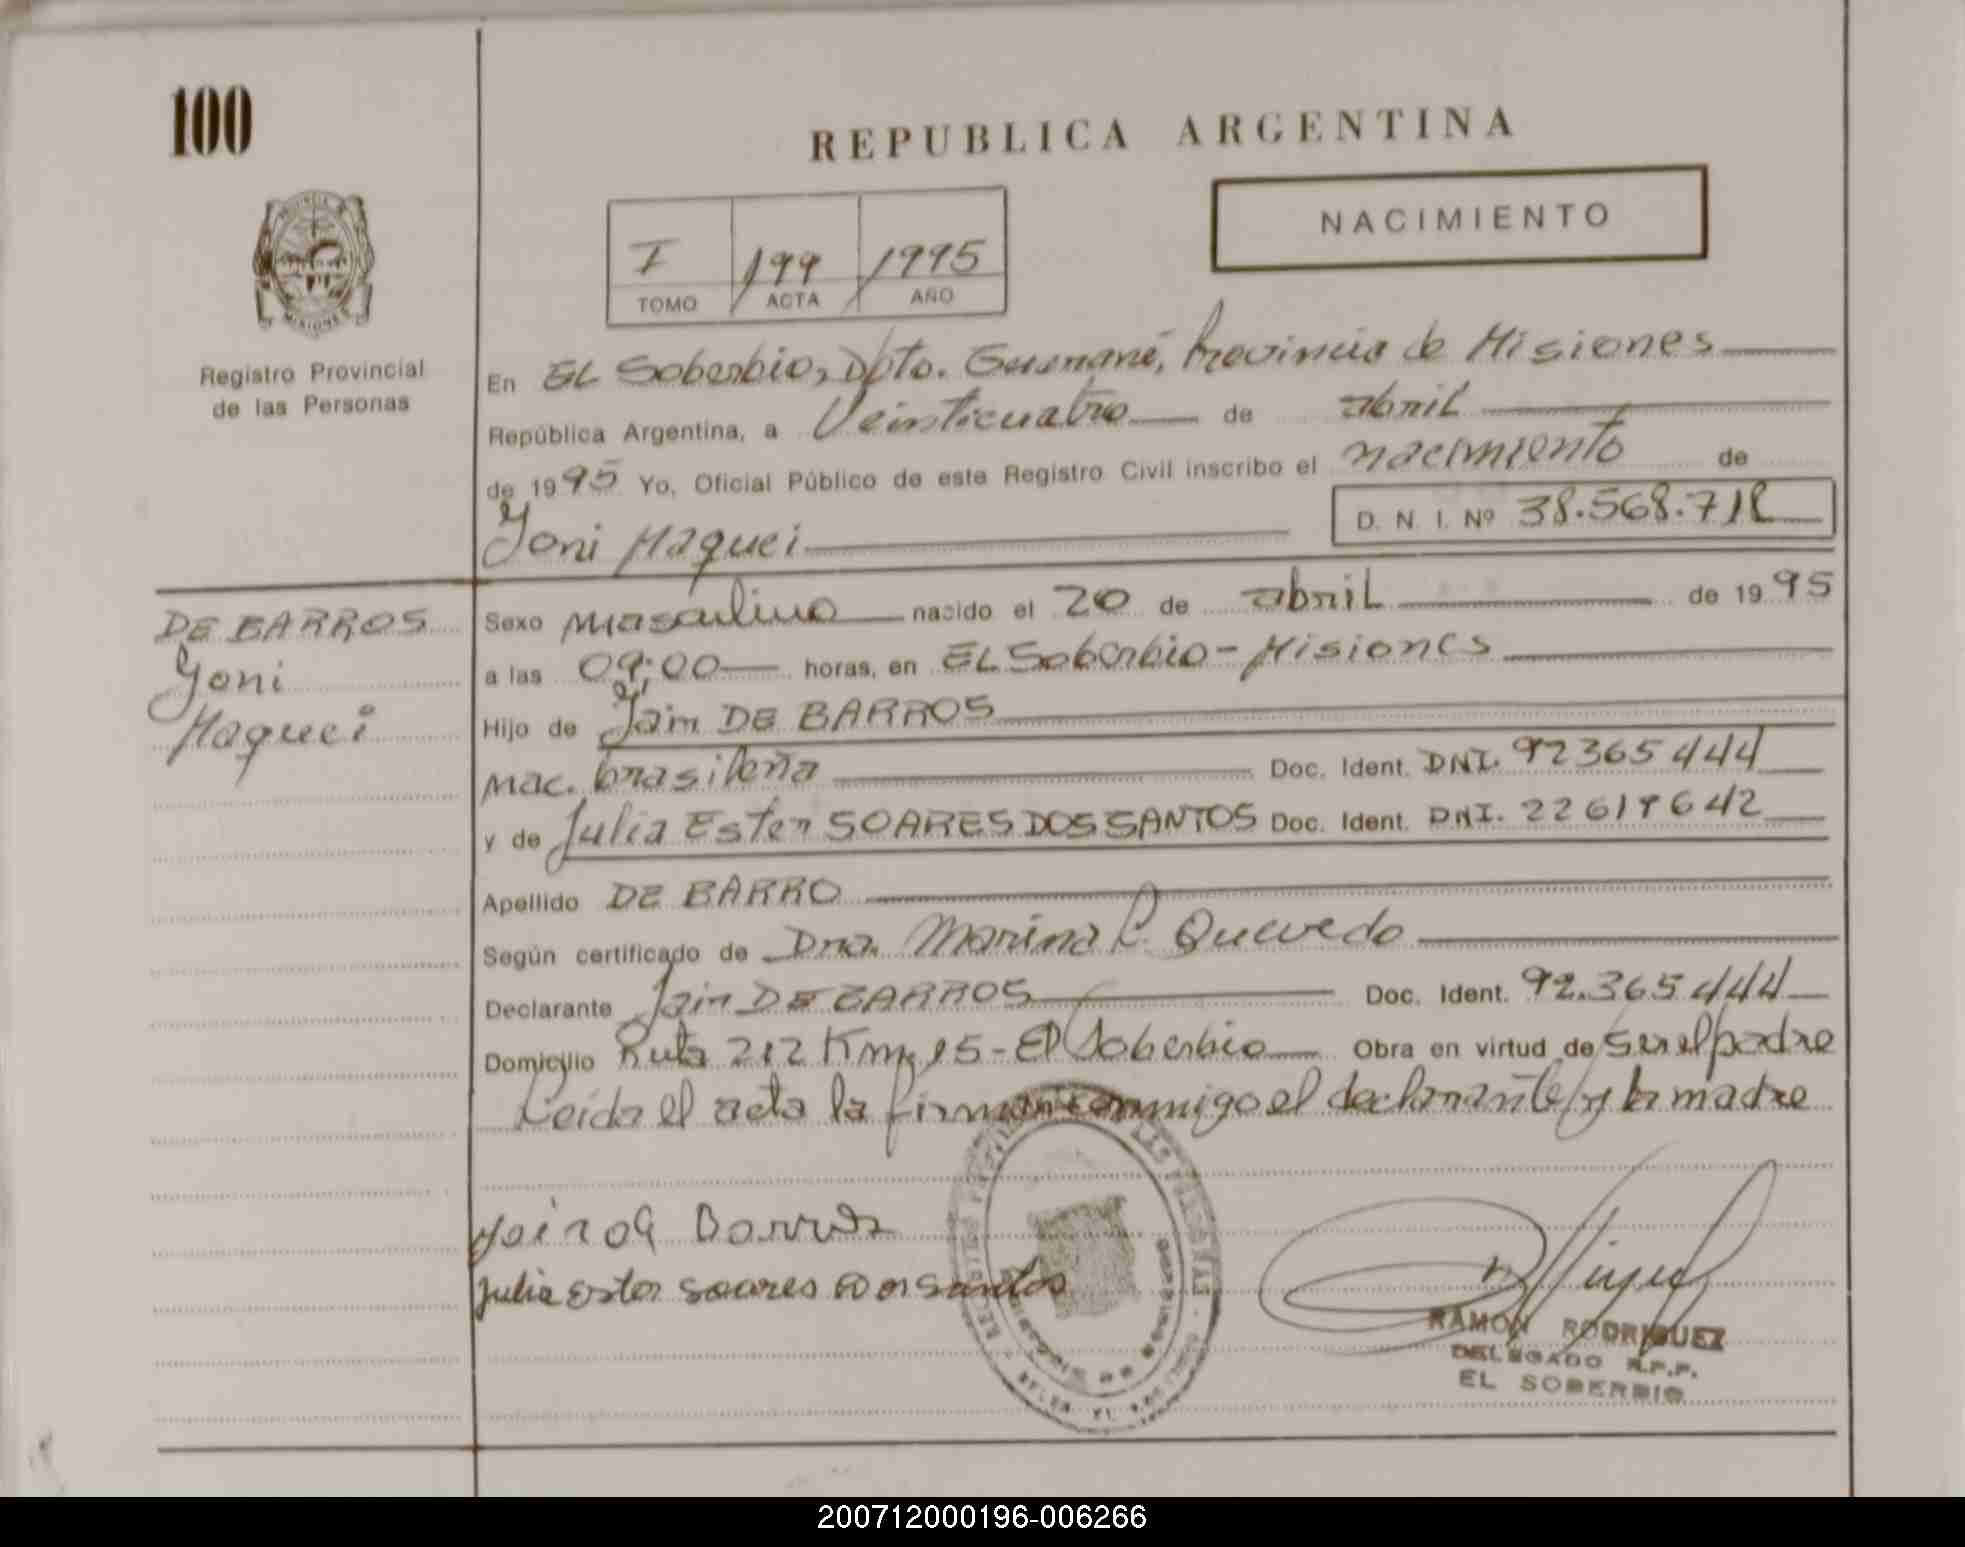 100
REPUBLICA ARGENTINA
NACIMIENTO
I 199 1995
TOMO ACTA AÑO
Registro Provincial
de las Personas
En EL Soberbio, Dpto. Guaraní, Provincia de Misiones
República Argentina, a Veinticuatro de abril
de 1995 Yo, Oficial Público de este Registro Civil inscribo el nacimiento de
Yoni Maquei D. N. I. Nº 38.568.718
DE BARROS
Yoni
Maquei
Sexo Masculino nacido el 20 de abril de 1995
a las 09:00 horas, en EL Soberbio - Misiones
Hijo de Jair DE BARROS
Nac. brasileña Doc. Ident. DNI. 92365444
y de Julia Ester SOARES DOS SANTOS Doc. Ident. DNI. 22619642
Apellido DE BARRO
Según certificado de Dra. Marina C. Quevedo
Declarante Jair DE BARROS Doc. Ident. 92.365444
Domicilio Ruta 212 Km, 15 - El Soberbio Obra en virtud de Ser el padre
Leída el acta la firman conmigo el declarante y la madre
Julia Ester Soares dos Santos
RAMON RODRIGUEZ
DELEGADO R.P.P.
EL SOBERBIO
200712000196-006266